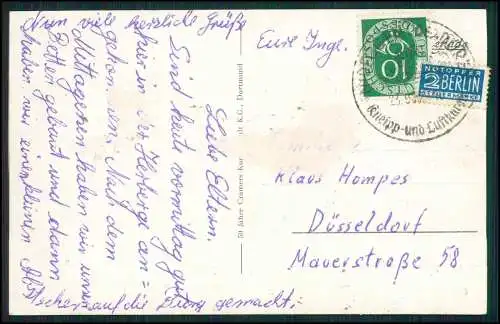 Liebe Eltern.
Sind heut vormittag gut
hier in der Herberge an=
gekommen. Nach dem
Mittagessen haben wir unsere
Betten gebaut und dann
haben wir einen kleinen
Abstecher auf die Burg gemacht.
Nun viele herzliche Grüße
Eure Inge.
50 Jahre Cramers Kunst
K.G., Dortmund
10
NOTOPFER
2 BERLIN
STEUERMARKE
Kneipp- und Luftkurort
Klaus Hompes
Düsseldorf
Mauerstraße 58